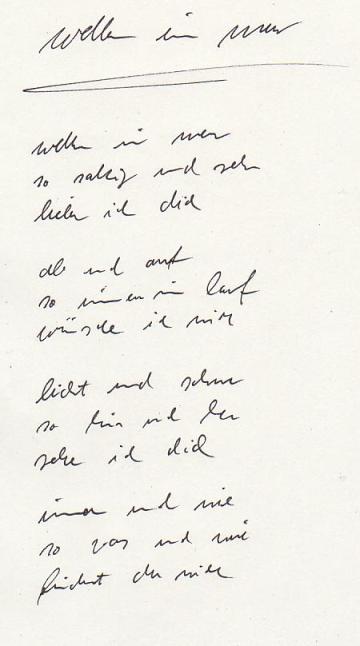 wellen im meer
wellen im meer
so salzig und sehr
liebe ich dich
ab und auf
so immer im lauf
wünsche ich mich
licht und schwer
so hin und her
sehe ich dich
immer und nie
so was und wie
findest du mich